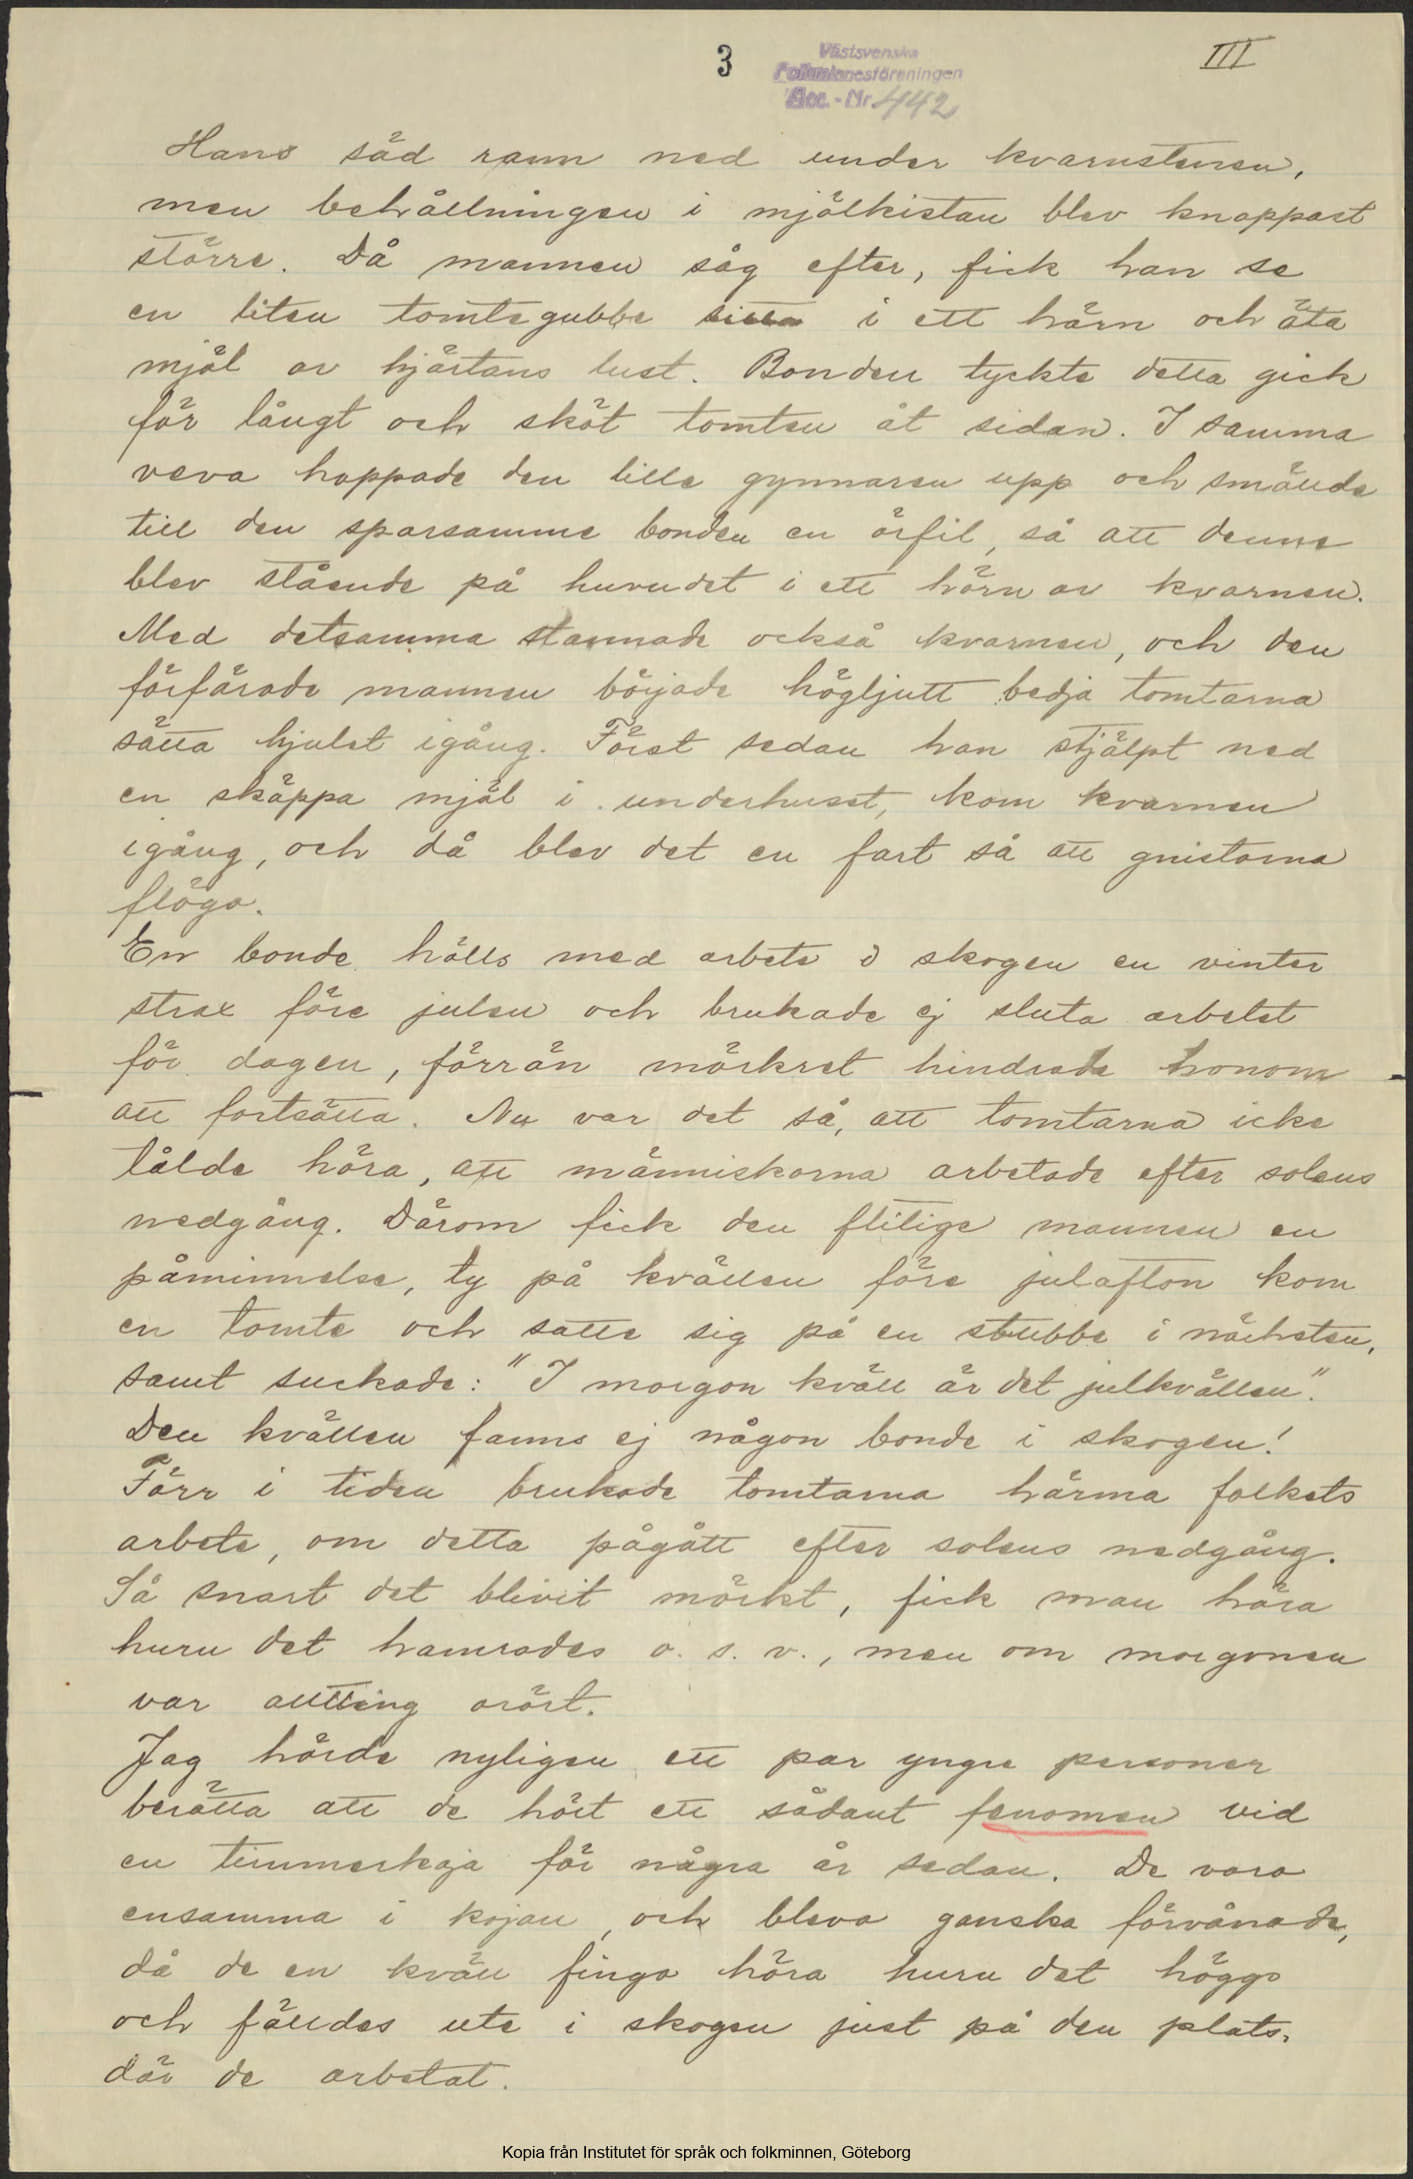 3
III
Västsvenska
Folkminnesföreningen
Acc.-Nr 442
Hans säd rann ned under kvarnstenen,
men behållningen i mjölkistan blev knappast
större. Då mannen såg efter, fick han se
en liten tomtegubbe sitta i ett hörn och äta
mjöl av hjärtans lust. Bonden tyckte detta gick
för långt och sköt tomten åt sidan. I samma
veva hoppade den lille gynnaren upp och smällde
till den sparsamme bonden en örfil, så att denne
blev stående på huvudet i ett hörn av kvarnen.
Med detsamma stannade också kvarnen, och den
förfärade mannen började högljutt bedja tomtarna
sätta hjulet igång. Först sedan han stjälpt ned
en skäppa mjöl i underhuset, kom kvarnen
igång, och då blev det en fart så att gnistorna
flögo.
En bonde hölls med arbete i skogen en vinter
strax före julen och brukade ej sluta arbetet
för dagen, förrän mörkret hindrade honom
att fortsätta. Nu var det så, att tomtarna icke
tålde höra, att människorna arbetade efter solens
nedgång. Därom fick den flitige mannen en
påminnelse, ty på kvällen före julafton kom
en tomte och satte sig på en stubbe i närheten,
samt suckade: "I morgon kväll är det julkvällen".
Den kvällen fanns ej någon bonde i skogen!
Förr i tiden brukade tomtarna härma folkets
arbete, om detta pågått efter solens nedgång.
Så snart det blivit mörkt, fick man höra
huru det hamrades o. s. v., men om morgonen
var allting orört.
Jag hörde nyligen ett par yngre personer
berätta att de hört ett sådant fenomen vid
en timmerkoja för några år sedan. De voro
ensamma i kojan, och blevo ganska förvånade,
då de en kväll fingo höra huru det höggs
och fälldes ute i skogen just på den plats,
där de arbetat.
Kopia från Institutet för språk och folkminnen, Göteborg